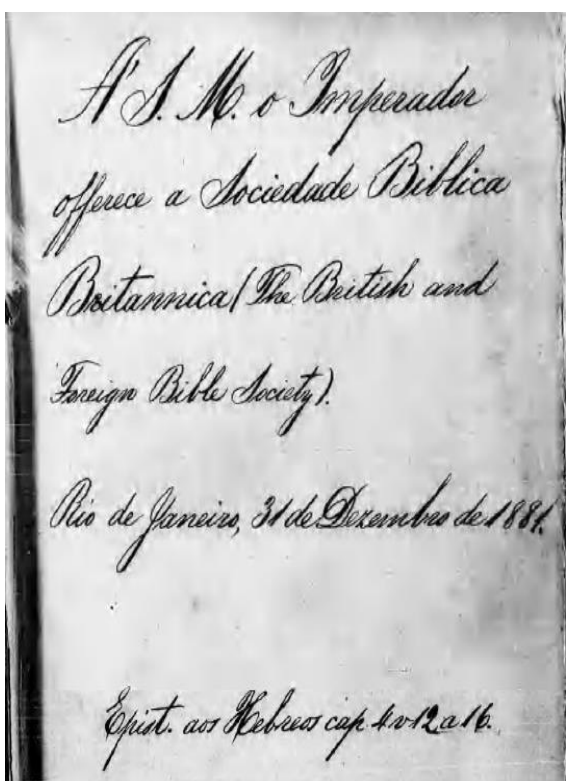 A' S. M. o Imperador
offerece a Sociedade Biblica
Britannica (The British and
Foreign Bible Society).
Rio de Janeiro, 31 de Dezembro de 1881.
Epist. aos Hebreos cap. 4 v 12 a 16.